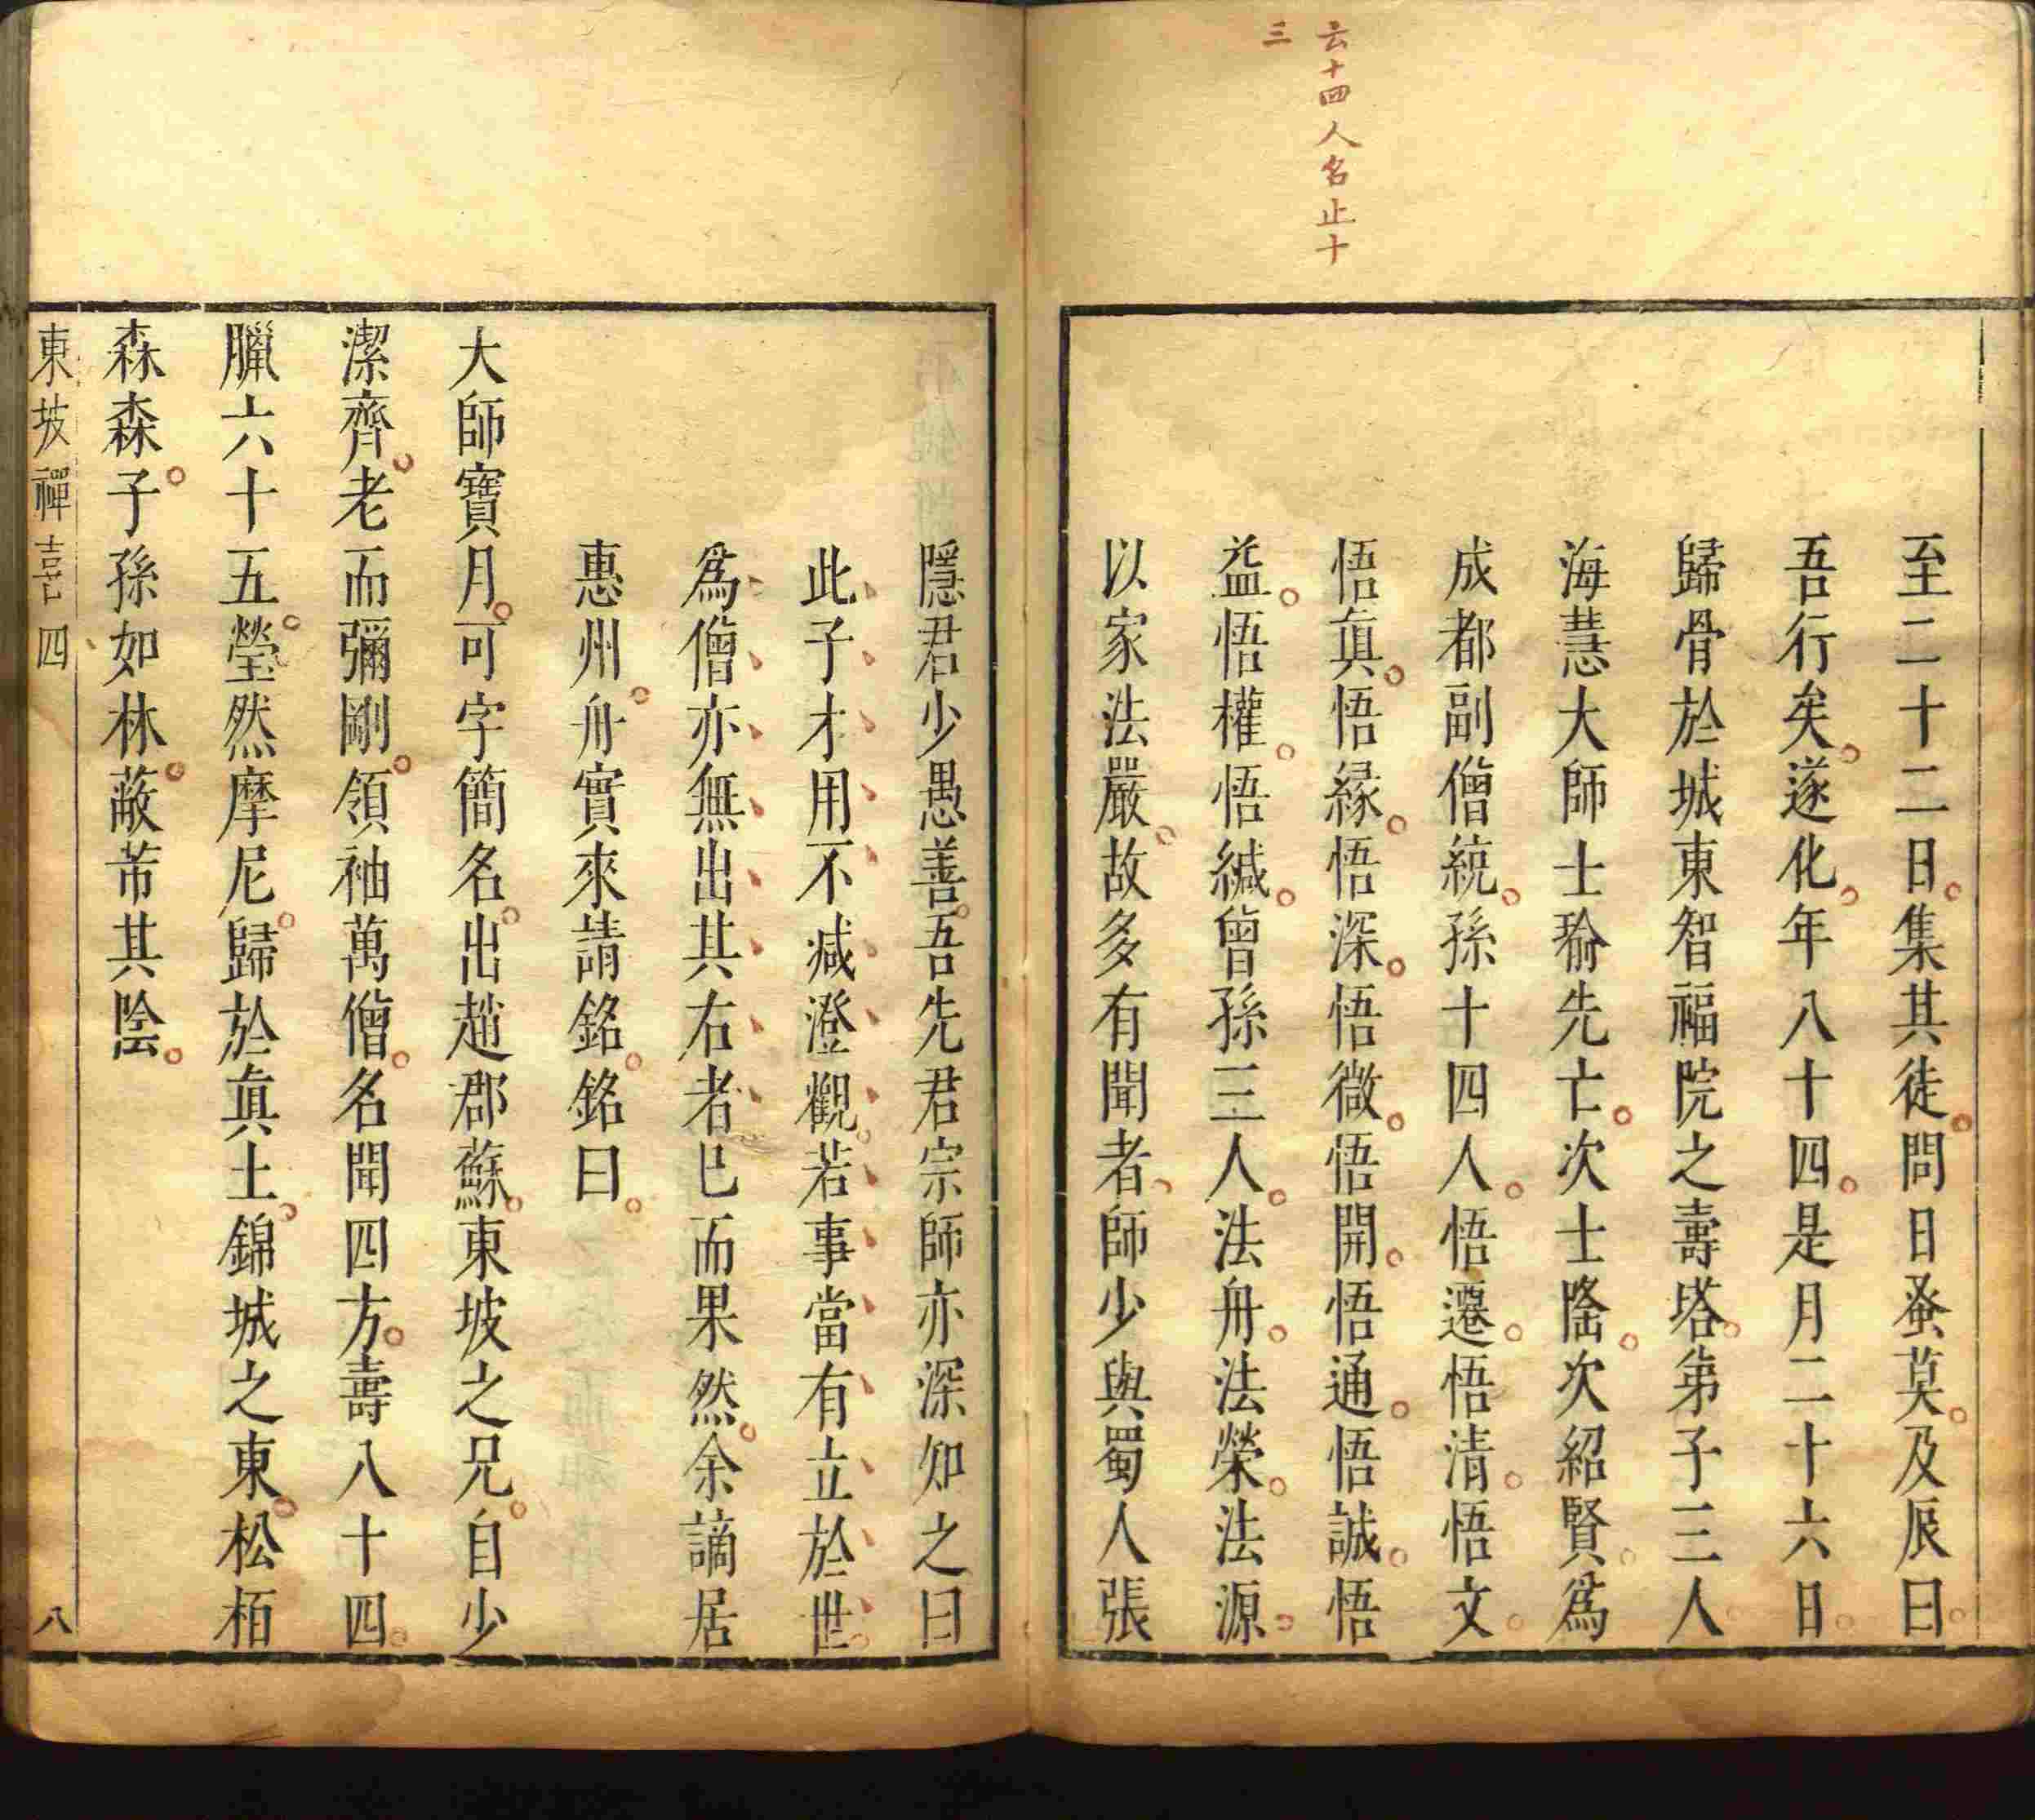 云十四人名止十
三
至二十二日集其徒問日蚤莫及辰曰
吾行矣遂化年八十四是月二十六日
歸骨於城東智福院之壽塔弟子三人
海慧大師士瑜先亡次士隆次紹賢爲
成都副僧統孫十四人悟遷悟清悟文
悟眞悟縁悟深悟微悟開悟通悟誠悟
益悟權悟緘曾孫三人法舟法榮法源
以家法嚴故多有聞者師少與蜀人張
隱君少愚善吾先君宗師亦深知之曰
此子才用不减澄觀若事當有立於世
爲僧亦無出其右者已而果然余謫居
惠州舟實來請銘銘曰
大師寶月可字簡名出趙郡蘇東坡之兄自少
潔齊老而彌剛領袖萬僧名聞四方壽八十四
臘六十五瑩然摩尼歸於眞土錦城之東松栢
森森子孫如林蔽芾其陰
東坡禪喜四
八